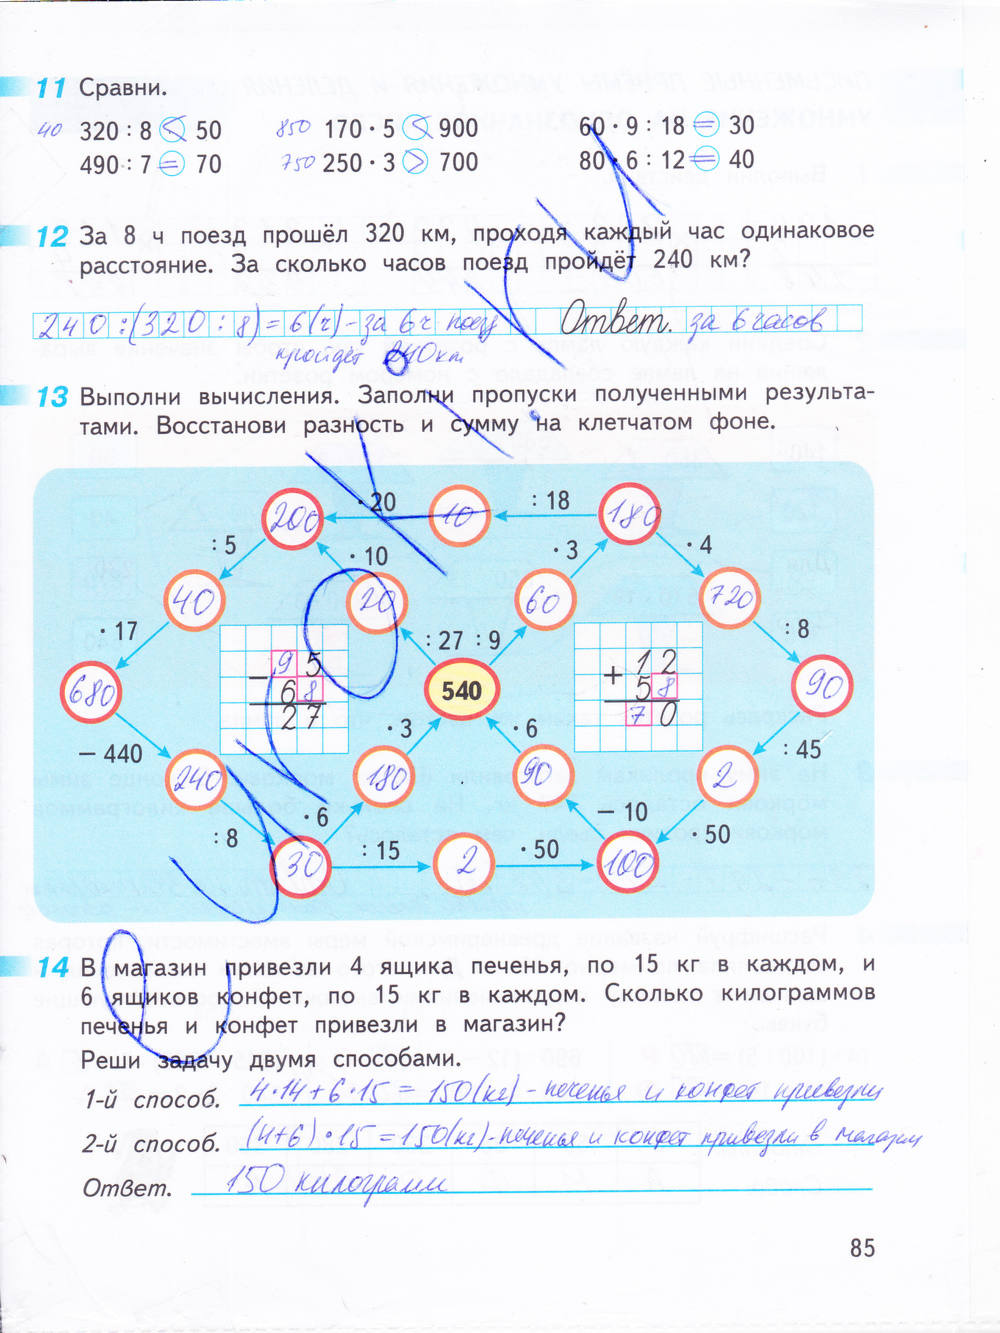 11 Сравни.
40 320 : 8 < 50 850 170 · 5 < 900 60 · 9 : 18 = 30
490 : 7 = 70 750 250 · 3 > 700 80 · 6 : 12 = 40
12 За 8 ч поезд прошёл 320 км, проходя каждый час одинаковое
расстояние. За сколько часов поезд пройдёт 240 км?
240 : (320 : 8) = 6(ч) - за 6 ч поезд Ответ. за 6 часов
пройдёт 240 км
13 Выполни вычисления. Заполни пропуски полученными результа-
тами. Восстанови разность и сумму на клетчатом фоне.
200 · 20 10 : 18 180
: 5 · 10 · 3 · 4
40 20 60 720
· 17 : 27 : 9 : 8
95 12
− 68 + 58
27 70
680 540 90
− 440 · 3 · 6 : 45
240 180 90 2
: 8 · 6 − 10 · 50
30 : 15 2 · 50 100
14 В магазин привезли 4 ящика печенья, по 15 кг в каждом, и
6 ящиков конфет, по 15 кг в каждом. Сколько килограммов
печенья и конфет привезли в магазин?
Реши задачу двумя способами.
1-й способ. 4·14+6·15 = 150(кг) - печенья и конфет привезли
2-й способ. (4+6)·15=150(кг)-печенья и конфет привезли в магазин
Ответ. 150 килограмм
85